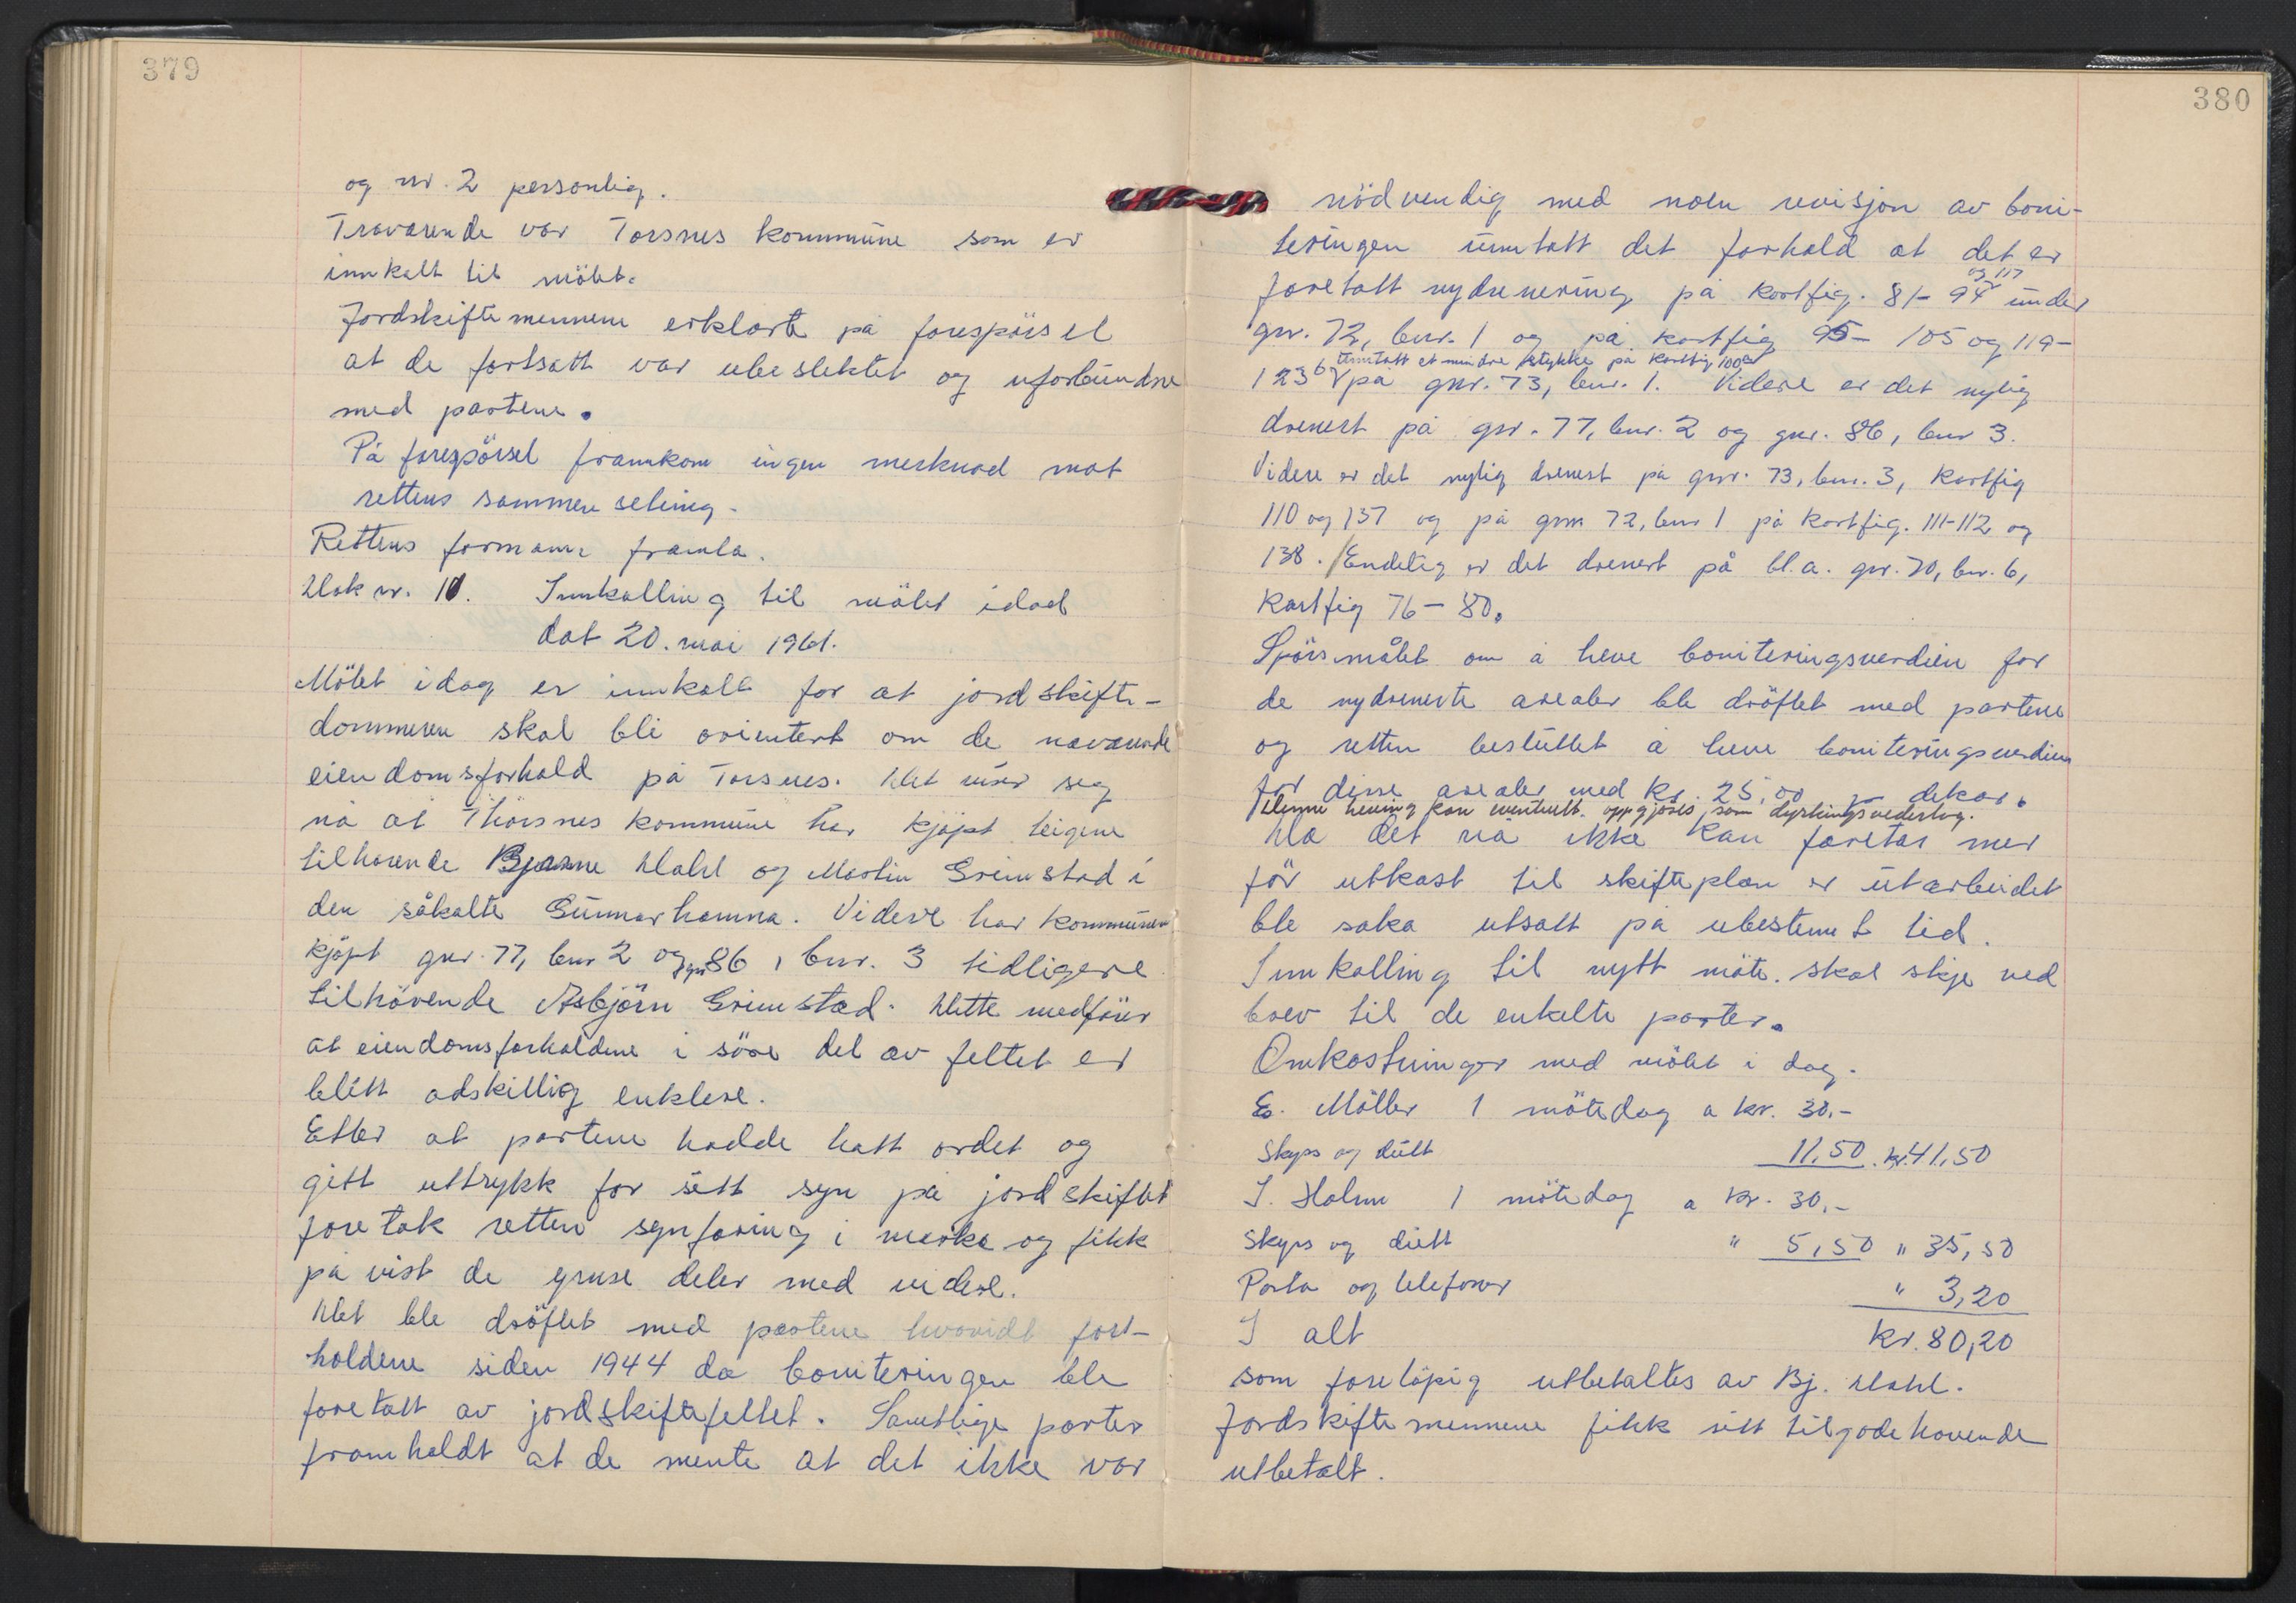 379
og nr. 2 personlig.
Fraværende var Torsnes kommune som er
innkalt til mötet.
Jordskiftemennene erklærte på forespörsel
at de fortsatt var ubeslektet og uforbundne
med partene.
På forespörsel framkom ingen merknad mot
rettens sammensetning.
Rettens formann framla.
Dok nr. 11. Innkalling til mötet idag
dat 20. mai 1961.
Mötet idag er innkalt for at jordskifte-
dommeren skal bli orientert om de nåværende
eiendomsforhold på Torsnes. Det viser seg
nå at Thorsnes kommune har kjöpt teigene
tilhörende Bjarne Dahl og Martin Grimstad i
den såkalte Gunnarhamna. Videre har kommunen
kjöpt gnr. 77, bnr 2 og gnr 86, bnr. 3 tidligere
tilhörende Asbjörn Grimstad. Dette medförer
at eiendomsforholdene i söre del av feltet er
blitt adskillig enklere.
Etter at partene hadde hatt ordet og
gitt uttrykk for sitt syn på jordskiftet
foretok retten synfaring i marka og fikk
påvist de grense deler med videre.
Det ble dröftet med partene hvorvidt for-
holdene siden 1944 da boniteringen ble
foretatt av jordskiftefeltet. Samtlige parter
framholdt at de mente at det ikke var
380
nödvendig med noen revisjon av boni-
teringen unntatt det forhold at det er
foretatt nydrenering på kartfig. 81-94 og 117 under
gnr. 72, bnr. 1 og på kartfig 95- 105 og 119-
123b unntatt et mindre stykke på kartfig 100a på gnr. 73, bnr. 1. Videre er det nylig
drenert på gnr. 77, bnr. 2 og gnr. 86, bnr 3.
Videre er det nylig drenert på gnr. 73, bnr. 3, kartfig
110 og 137 og på gnr 72, bnr 1 på kartfig. 111-112 og
138. Endelig er det drenert på bl.a. gnr. 70, bnr. 6,
kartfig 76-80.
Spörsmålet om å heve boniteringsverdien for
de nydrenerte arealer ble dröftet med partene
og retten besluttet å heve boniteringsverdien
for disse arealer med kr. 25,00 pr dekar.
Denne hevning kan eventuelt oppgjöres som dyrkingsvederlag.
Da det nå ikke kan foretas mer
för utkast til skifteplan er utarbeidet
ble saka utsatt på ubestemt tid.
Innkalling til nytt möte skal skje ved
brev til de enkelte parter.
Omkostninger med mötet i dag.
E. Möller 1 mötedag a kr. 30.-
Skyss og diett 11,50 kr. 41,50
I. Holm 1 mötedag a kr. 30.-
Skyss og diett " 5,50 " 35,50
Porto og telefoner " 3,20
I alt kr. 80,20
som forelöpig utbetaltes av Bj. Dahl.
Jordskiftemennene fikk sitt tilgodehavende
utbetalt.